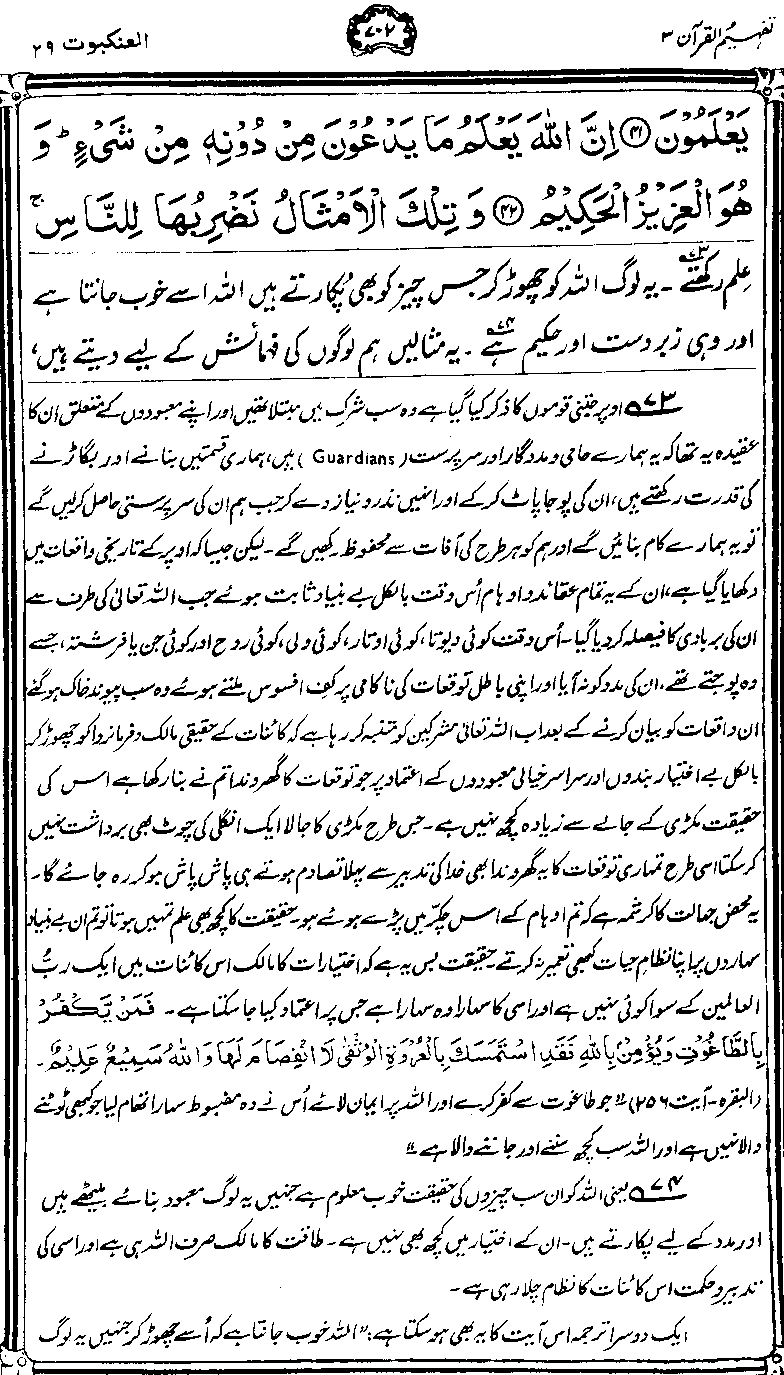 تفہیم القرآن ۳
۷۰۲
العنکبوت ۲۹
يَعْلَمُوْنَ ﴿۴۱﴾ اِنَّ اللّٰهَ يَعْلَمُ مَا يَدْعُوْنَ مِنْ دُوْنِهٖ مِنْ شَىْءٍ ؕ وَ
هُوَ الْعَزِيْزُ الْحَكِيْمُ ﴿۴۲﴾ وَ تِلْكَ الْاَمْثَالُ نَضْرِبُهَا لِلنَّاسِ ۚ
علم رکھتے ۷۳۔ یہ لوگ اللہ کو چھوڑ کر جس چیز کو بھی پکارتے ہیں اللہ اسے خوب جانتا ہے
اور وہی زبردست اور حکیم ہے ۷۴۔ یہ مثالیں ہم لوگوں کی فہمائش کے لیے دیتے ہیں،
۷۳؎ اوپر جتنی قوموں کا ذکر کیا گیا ہے وہ سب شرک میں مبتلا تھیں اور اپنے معبودوں کے متعلق ان کا
عقیدہ یہ تھا کہ یہ ہمارے حامی و مددگار اور سرپرست (Guardians) ہیں، ہماری قسمتیں بنانے اور بگاڑنے
کی قدرت رکھتے ہیں، ان کی پوجا پاٹ کر کے اور انہیں نذر و نیاز دے کر جب ہم ان کی سرپرستی حاصل کرلیں گے
تو یہ ہمارے کام بنائیں گے اور ہم کو ہر طرح کی آفات سے محفوظ رکھیں گے۔ لیکن جیسا کہ اوپر کے تاریخی واقعات میں
دکھایا گیا ہے، ان کے یہ تمام عقائد و اوہام اُس وقت بالکل بے بنیاد ثابت ہوئے جب اللہ تعالیٰ کی طرف سے
ان کی بربادی کا فیصلہ کر دیا گیا۔ اُس وقت کوئی دیوتا، کوئی اوتار، کوئی ولی، کوئی روح اور کوئی جن یا فرشتہ، جسے
وہ پوجتے تھے، ان کی مدد کو نہ آیا اور اپنی باطل توقعات کی ناکامی پر کفِ افسوس ملتے ہوئے وہ سب پیوند خاک ہو گئے
ان واقعات کو بیان کرنے کے بعد اب اللہ تعالیٰ مشرکین کو متنبہ کر رہا ہے کہ کائنات کے حقیقی مالک و فرمانروا کو چھوڑ کر
بالکل بے اختیار بندوں اور سراسر خیالی معبودوں کے اعتماد پر جو توقعات کا گھروندا تم نے بنا رکھا ہے اس کی
حقیقت مکڑی کے جالے سے زیادہ کچھ نہیں ہے۔ جس طرح مکڑی کا جالا ایک انگلی کی چوٹ بھی برداشت نہیں
کر سکتا اسی طرح تمہاری توقعات کا یہ گھروندا بھی خدا کی تدبیر سے پہلا تصادم ہوتے ہی پاش پاش ہو کر رہ جائے گا۔
یہ محض جہالت کا کرشمہ ہے کہ تم اوہام کے اس چکر میں پڑے ہوئے ہو۔ حقیقت کا کچھ بھی علم تمہیں ہوتا تو تم ان بے بنیاد
سہاروں پر اپنا نظام حیات کبھی تعمیر نہ کرتے۔ حقیقت بس یہ ہے کہ اختیارات کا مالک اس کائنات میں ایک ربُّ
العالمین کے سوا کوئی نہیں ہے اور اسی کا سہارا وہ سہارا ہے جس پر اعتماد کیا جا سکتا ہے۔ فَمَنْ يَّكْفُرْ
بِالطَّاغُوْتِ وَيُؤْمِنْۢ بِاللّٰهِ فَقَدِ اسْتَمْسَكَ بِالْعُرْوَةِ الْوُثْقٰى لَا انْفِصَامَ لَهَا وَاللّٰهُ سَمِيْعٌ عَلِيْمٌ۔
(البقرہ۔ آیت ۲۵۶) "جو طاغوت سے کفر کرے اور اللہ پر ایمان لائے اُس نے وہ مضبوط سہارا تھام لیا جو کبھی ٹوٹنے
والا نہیں ہے اور اللہ سب کچھ سننے اور جاننے والا ہے"
۷۴؎ یعنی اللہ کو ان سب چیزوں کی حقیقت خوب معلوم ہے جنہیں یہ لوگ معبود بنائے بیٹھے ہیں
اور مدد کے لیے پکارتے ہیں۔ ان کے اختیار میں کچھ بھی نہیں ہے۔ طاقت کا مالک صرف اللہ ہی ہے اور اسی کی
تدبیر و حکمت اس کائنات کا نظام چلا رہی ہے۔
ایک دوسرا ترجمہ اس آیت کا یہ بھی ہو سکتا ہے: "اللہ خوب جانتا ہے کہ اُسے چھوڑ کر جنہیں یہ لوگ